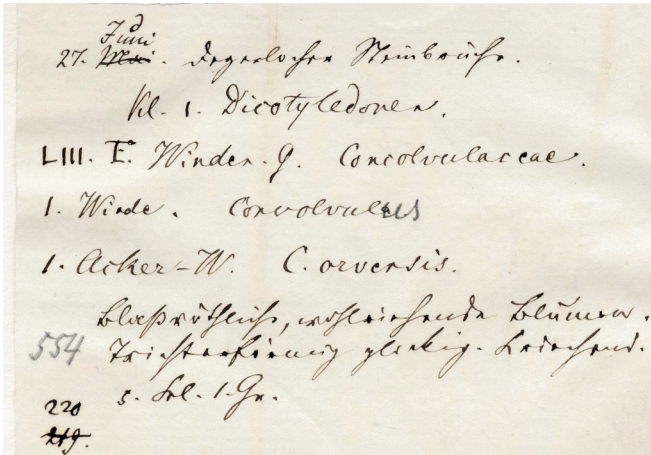 Juni
27. Mai. Degerlocher Steinbrüche.
Kl. 1. Dicotyledonen.
LIII. F. Winden. G. Concolvulaceae.
1. Winde. Convolvulus
1. Acker-W. C. arvensis.
Blaßröthliche, wohlriechende Blumen.
554 Trichterförmig glockig. Kriechend.
5. Stbl. 1. Gr.
220
219.